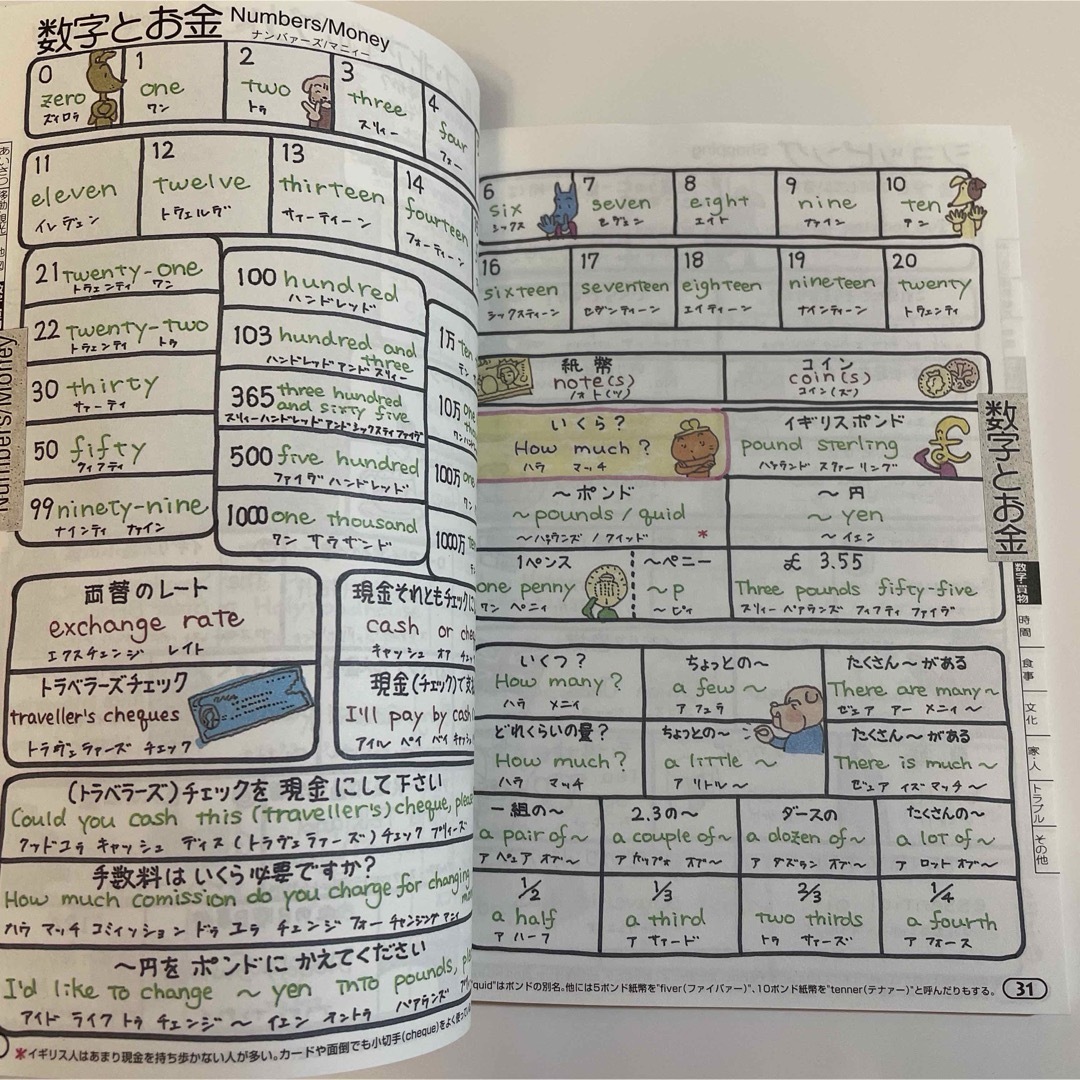 数字とお金 Numbers/Money
ナンバァーズ/マニィー
0
zero
1
one
ワン
2
two
トゥ
3
three
スリィー
4
four
フォー
11
eleven
イレヴェン
12
twelve
トウェルヴ
13
thirteen
サァーティーン
14
fourteen
フォーティーン
21 twenty-one
トウェンティ ワン
22 twenty-two
トウェンティ トゥ
30 thirty
サァーティ
50 fifty
フィフティ
99 ninety-nine
ナインティ ナイン
100 hundred
ハンドレッド
103 hundred and
three
ハンドレッド アンド スリィー
365 three hundred
and sixty five
スリィーハンドレッド アンド シックスティ ファイヴ
500 five hundred
ファイヴ ハンドレッド
1000 one thousand
ワン サウザンド
1万 ten
10万 one
100万 one
1000万 ten
両替のレート
exchange rate
エクスチェンジ レイト
トラベラーズチェック
traveller's cheques
トラヴェラァーズ チェック
現金それともチェックに
cash or che
キャッシュ オア チェッ
現金(チェック)で支
I'll pay by cash
アイル ペイ バイ キャッシ
(トラベラーズ)チェックを 現金 にして下さい
Could you cash this (traveller's) cheque, please
クッドユゥ キャッシュ ディス (トラヴェラァーズ) チェック プリィーズ
手数料は いくら必要ですか?
How much comission do you charge for changing
ハウ マッチ コミィッション ドゥ ユゥ チェンジ フォー チェンジング マニィ
〜円を ポンドに かえてください
I'd like to change 〜 yen into pounds, ple
アイド ライク トゥ チェンジ 〜 イェン イントゥ パァウンズ
*イギリス人はあまり現金を持ち歩かない人が多い。カードや面倒でも小切手(cheque)をよく使
Numbers/Money
6
six
シックス
7
seven
セヴェン
8
eight
エイト
9
nine
ナイン
10
ten
テン
16
sixteen
シックスティーン
17
seventeen
セヴンティーン
18
eighteen
エイティーン
19
nineteen
ナインティーン
20
twenty
トウェンティ
紙幣
note(s)
ノォト(ツ)
コイン
coin(s)
コイン(ズ)
いくら?
How much?
ハウ マッチ
イギリスポンド
pound sterling
パァウンド スタァーリング
〜ポンド
〜pounds / quid
〜パァウンズ / クイッド *
〜円
〜 yen
〜 イェン
1ペンス
one penny
ワン ペニィ
〜ペニー
〜p
〜ピィ
£ 3.55
Three pounds fifty-five
スリィー パァウンズ フィフティ ファイヴ
いくつ?
How many?
ハウ メニィ
ちょっとの〜
a few 〜
ア フュウ
たくさん〜がある
There are many〜
ゼェア アー メニィ 〜
どれくらいの量?
How much?
ハウ マッチ
ちょっとの〜
a little 〜
ア リトル 〜
たくさん〜がある
There is much〜
ゼェア イズ マッチ 〜
一組の〜
a pair of〜
ア ペェア オブ〜
2,3の〜
a couple of〜
ア カップォ オブ〜
ダースの
a dozen of〜
ア ダズン オブ〜
たくさんの〜
a lot of〜
ア ロット オブ〜
1/2
a half
ア ハーフ
1/3
a third
ア サァード
2/3
two thirds
トゥ サァーズ
1/4
a fourth
ア フォース
quid"はポンドの別名。他には5ポンド紙幣を"fiver(ファイバァー)"、10ポンド紙幣を"tenner(テナァー)"と呼んだりもする。
31
数字とお金
数字・買物
時間
食事
文化
家・人
トラブル
その他